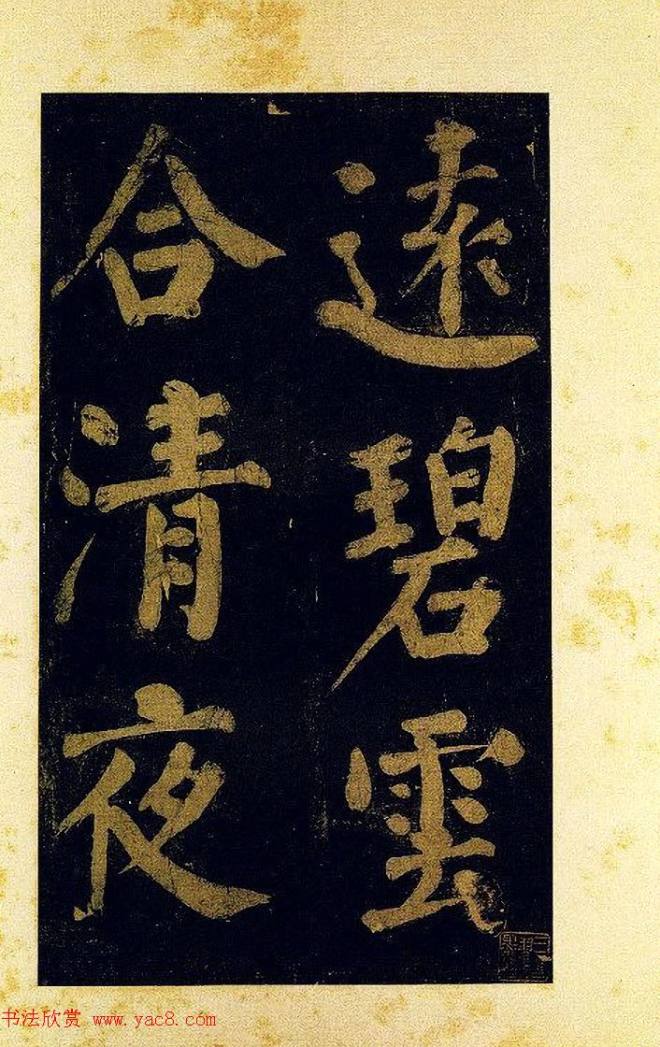 遠碧雲
合清夜
书法欣赏 www.yac8.com